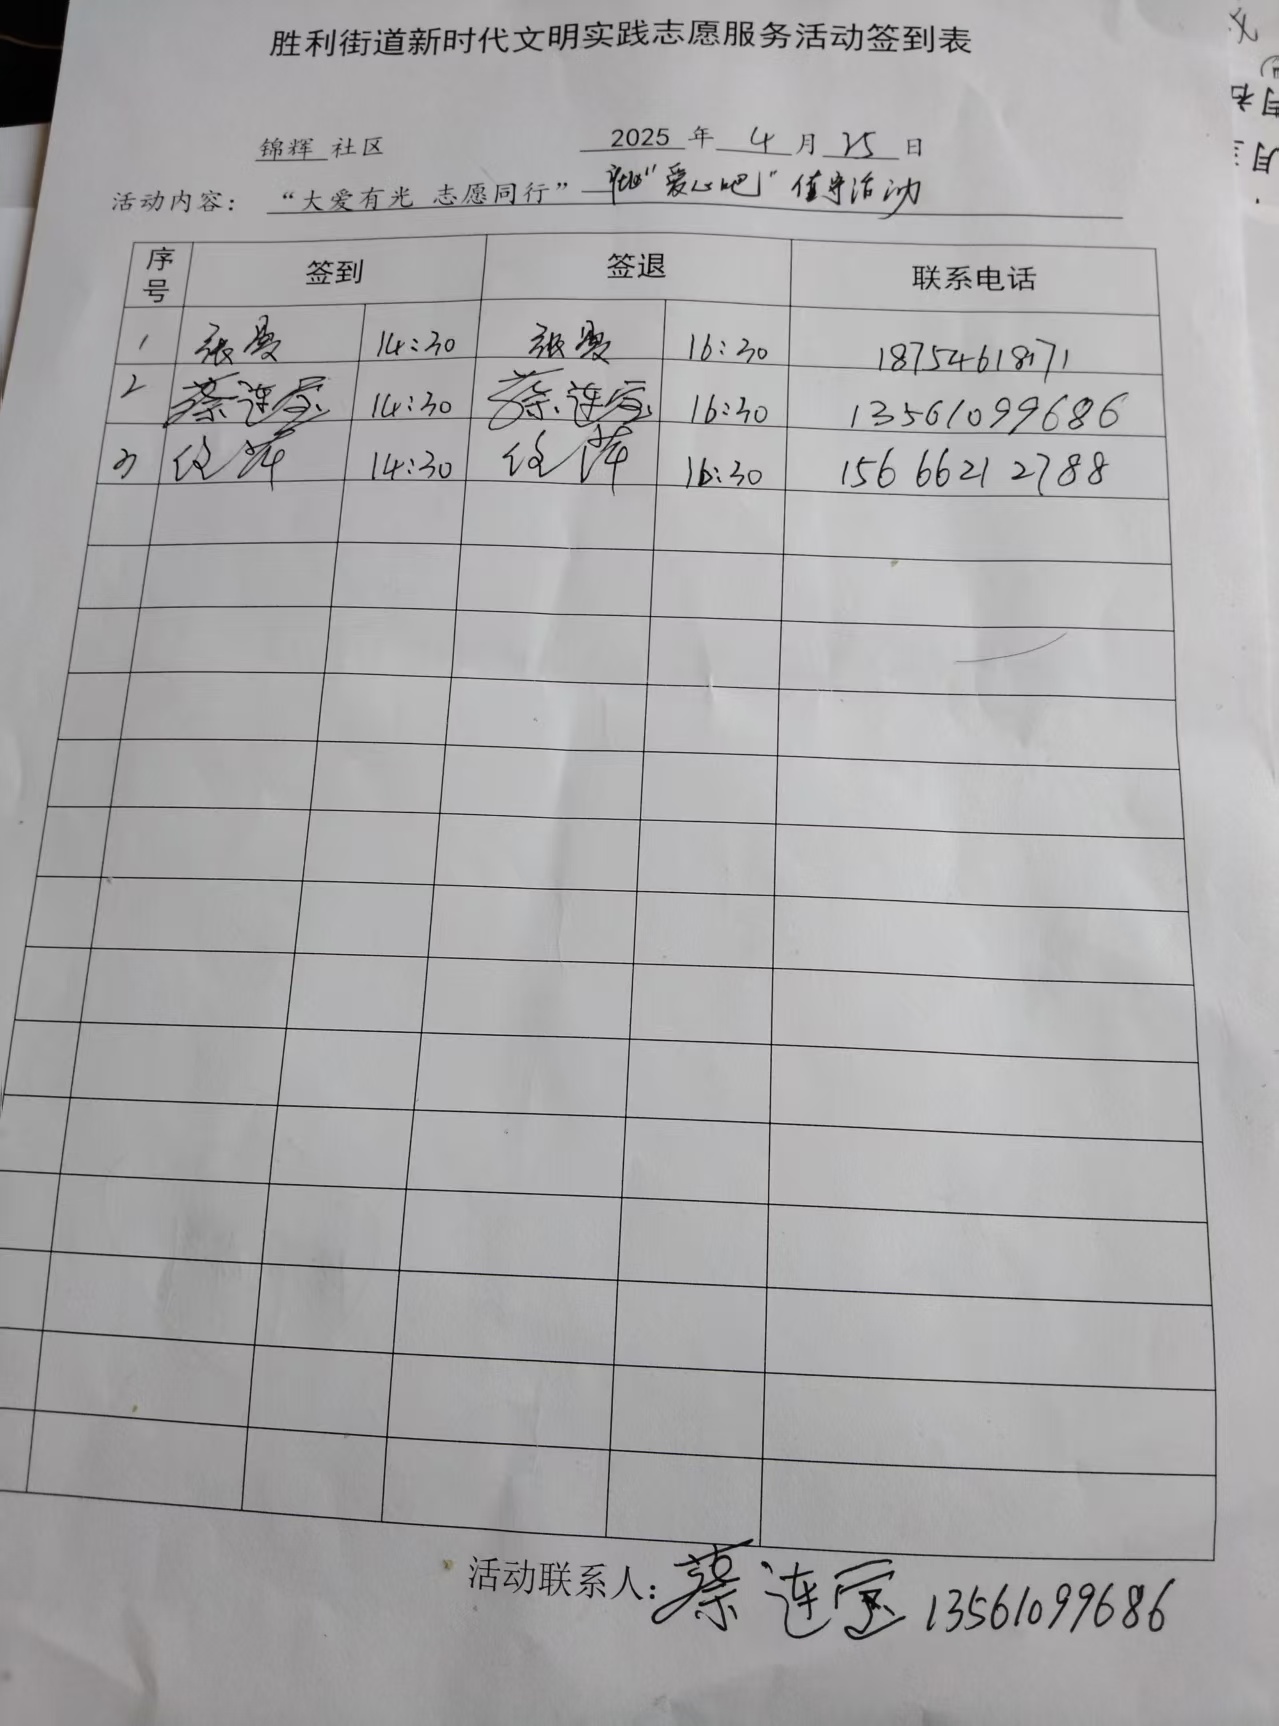 胜利街道新时代文明实践志愿服务活动签到表
锦辉 社区 2025 年 4 月 25 日
活动内容： “大爱有光 志愿同行” 社区“爱心吧” 值守活动
序号 签到 签退 联系电话
1 张 14:30 张 16:30 18754618171
2 蔡连宝 14:30 蔡连宝 16:30 13561099686
3 任萍 14:30 任萍 16:30 156 6621 2788
活动联系人: 蔡连宝 13561099686